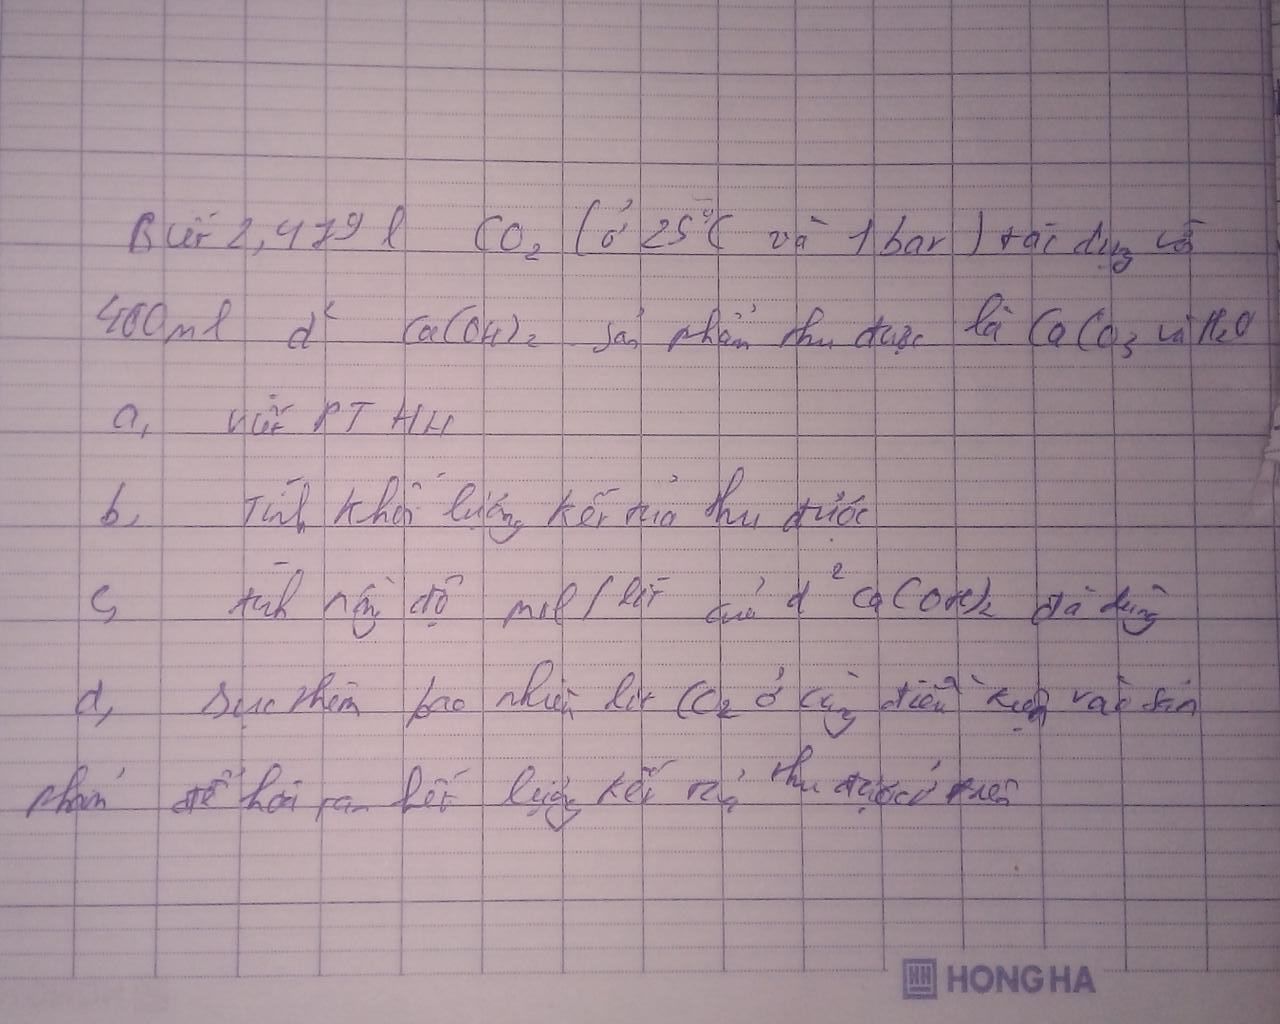 Biết 2,479 l CO2 (ở 25°C và 1 bar) tác dụng với
400ml d² Ca(OH)2 sản phẩm thu được là CaCO3 và H2O
a, viết PTHH
b, Tính khối lượng kết tủa thu được
c, tính nồng độ mol/lít của d² Ca(OH)2 đã dùng
d, Sục thêm bao nhiêu lít CO2 ở cùng điều kiện vào sản
phẩm để hòa tan hết lượng kết tủa thu được ở trên
HONG HA